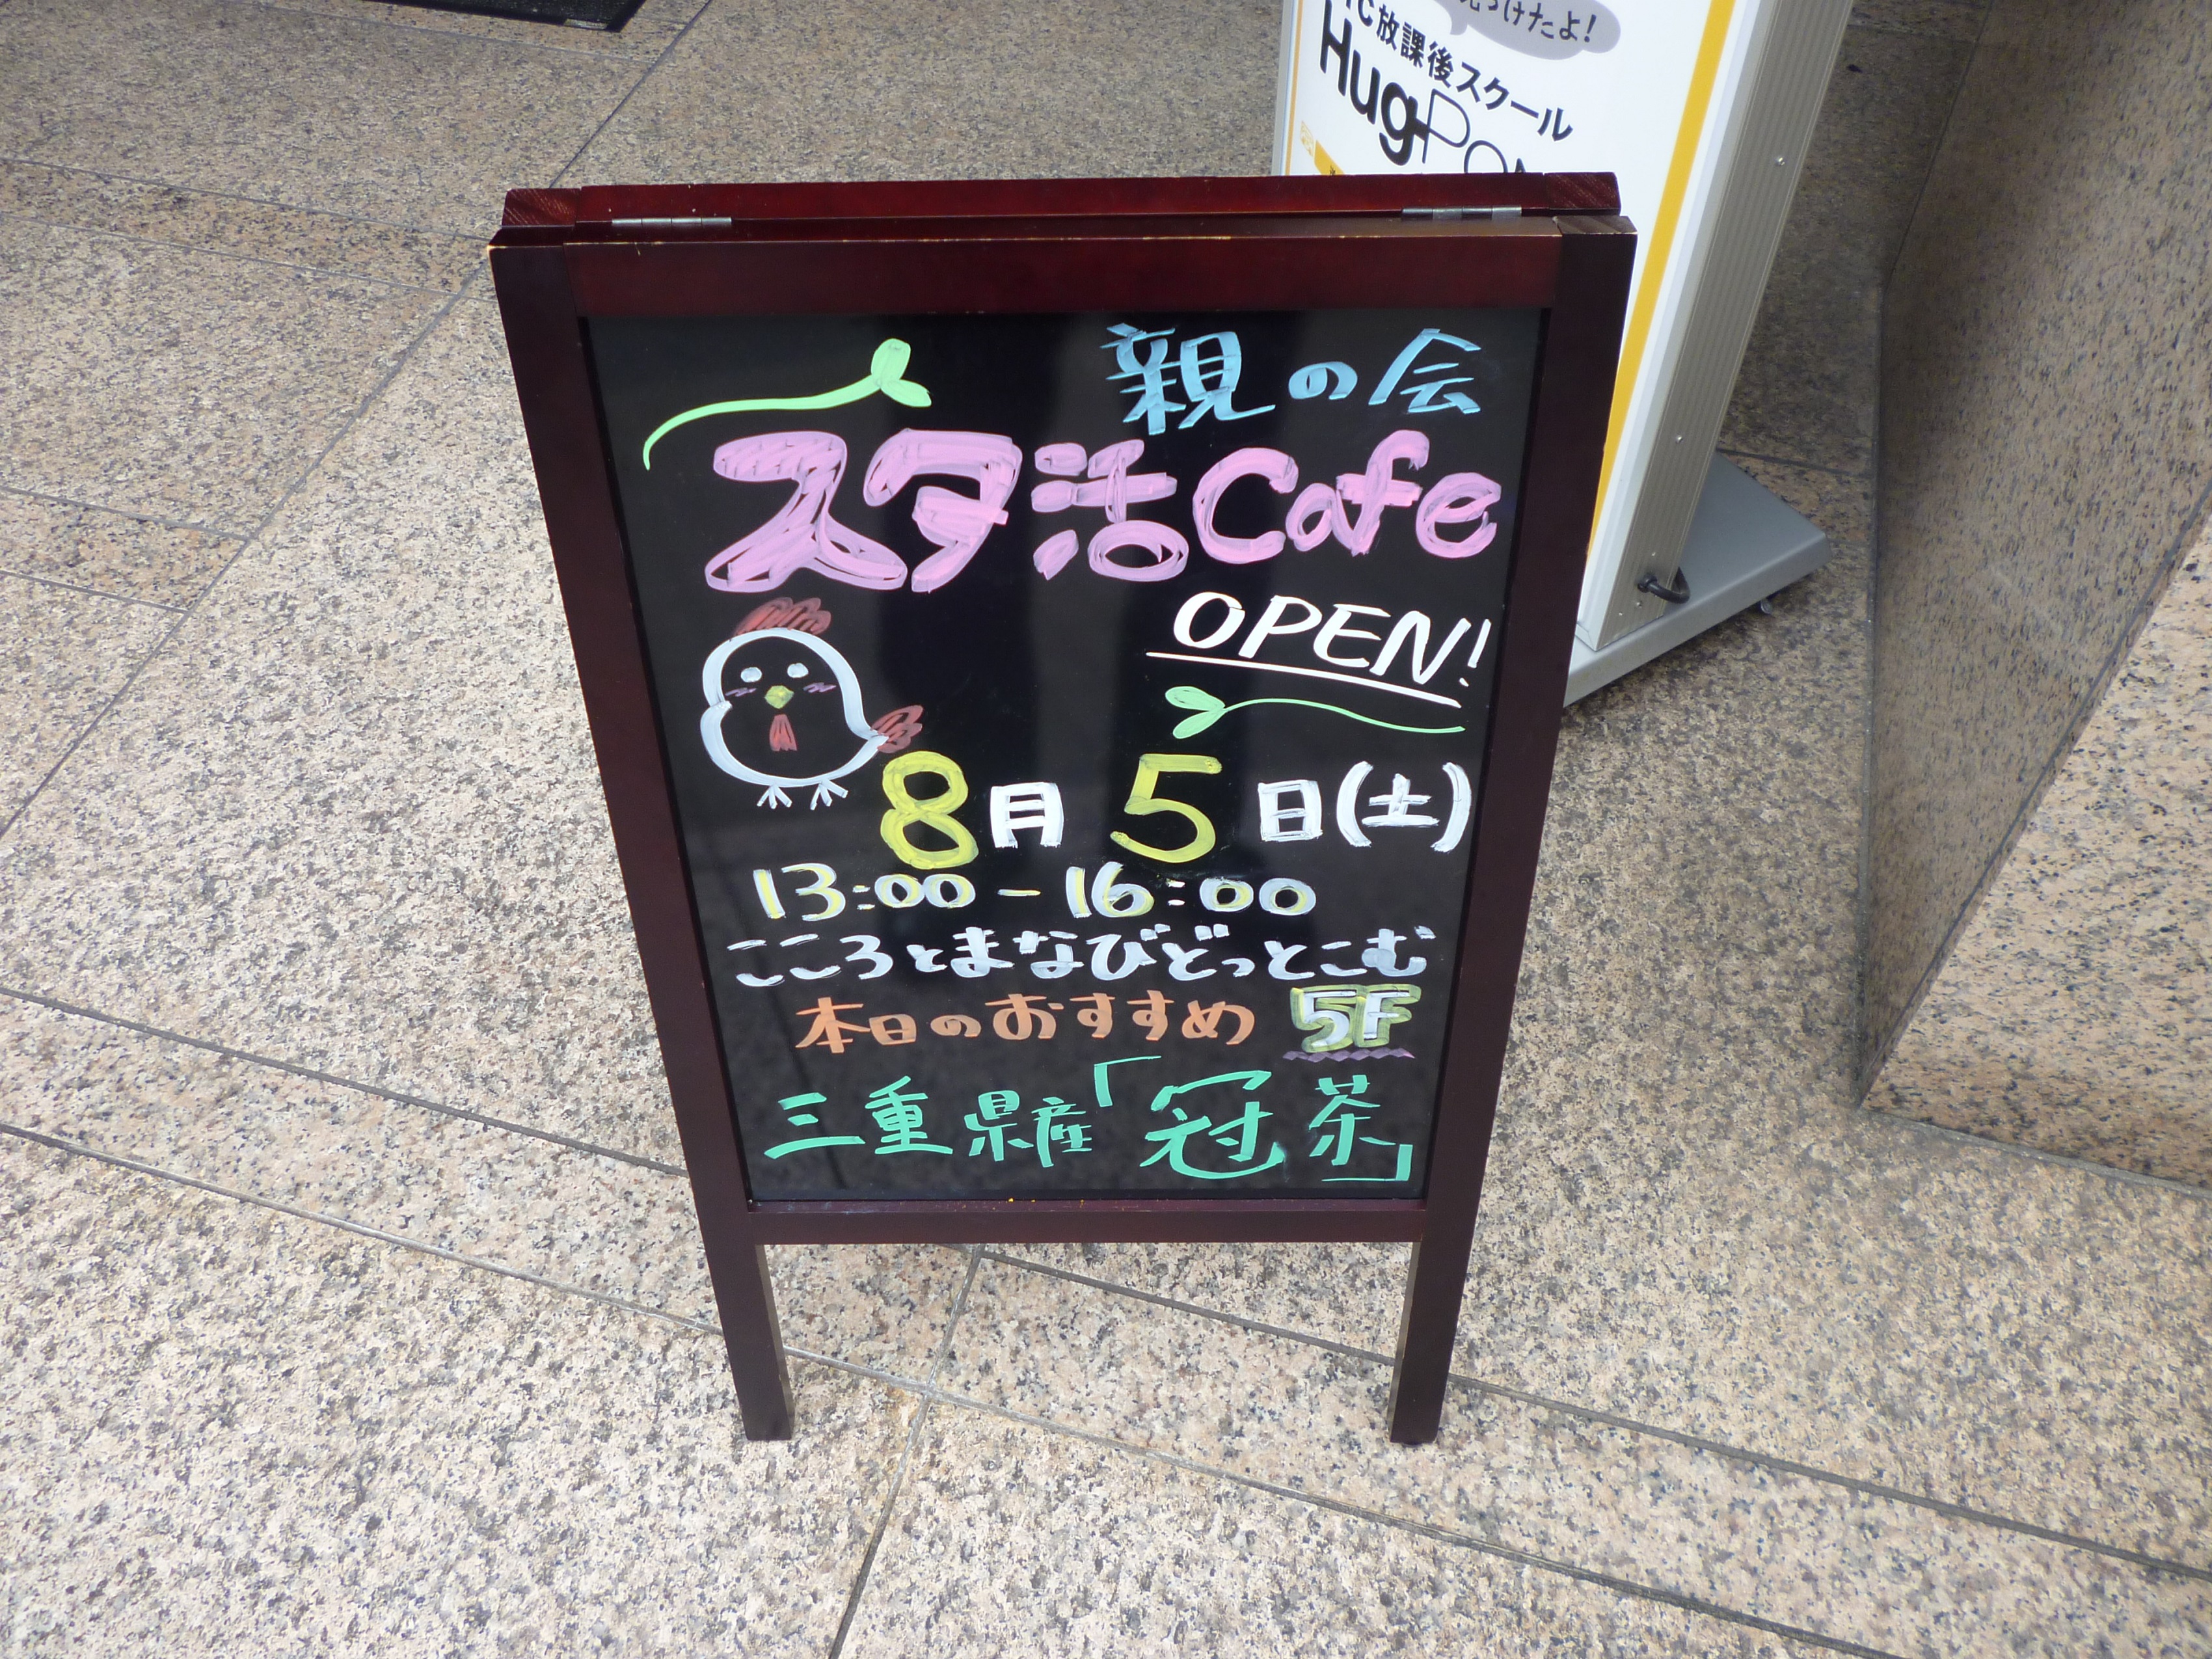 つけたよ!
C放課後スクール
HugPON
親の会
スタ活Cafe
OPEN!
8月5日(土)
13:00-16:00
こころとまなびどっとこむ
本日のおすすめ 5F
三重県産「冠茶」